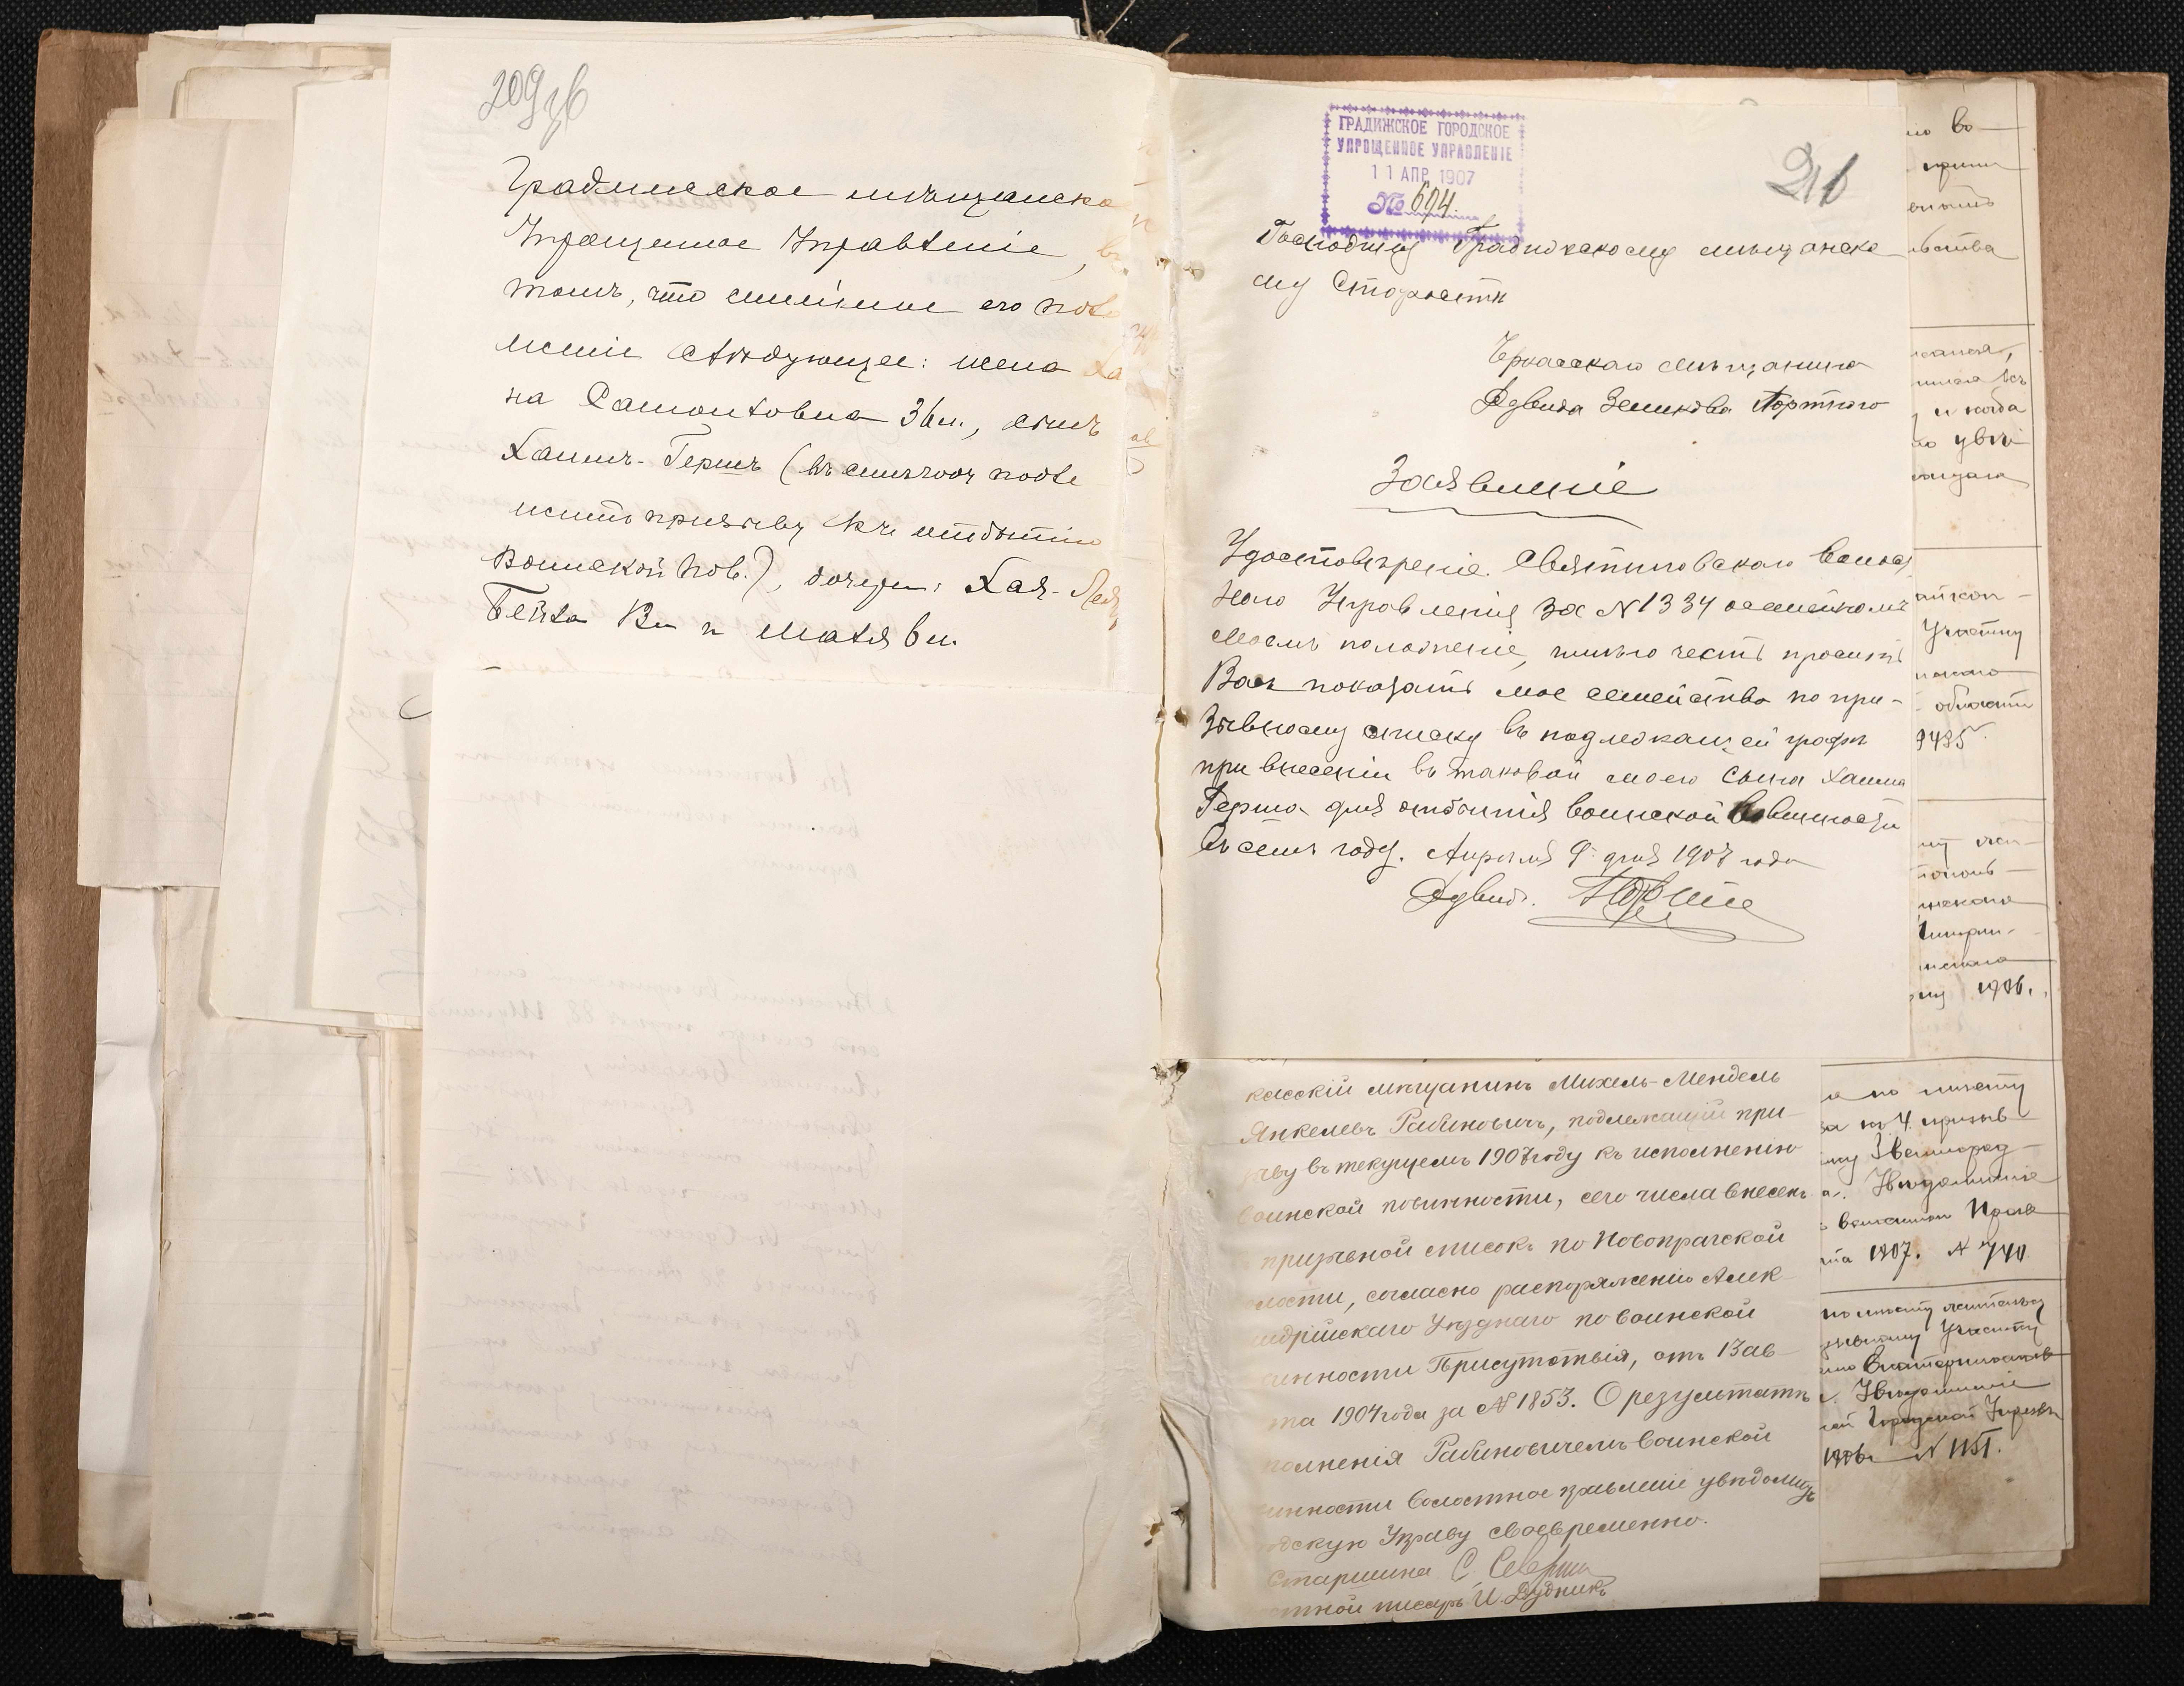 209 зв
Градижское мѣщанско
Упрощенное Управленіе, въ
томъ, что семейное его поло
женіе слѣдующее: жена Ха
на Самойловна 36 л., сынъ
Хаимъ-Гершъ (въ семъ году подле
житъ призыву къ отбытію
воинской пов.), дочери: Хая-Лея,
Бейла 13 л и Матля 6 л.
ГРАДИЖСКОЕ ГОРОДСКОЕ
УПРОЩЕННОЕ УПРАВЛЕНІЕ
11 АПР. 1907
№ 694.
Господину Градижскому мѣщанско
му Старостѣ
Черкасскаго мѣщанина
Дувида Портного
Заявленіе
Удостовѣреніе Святиловскаго Волост
ного Управленія за N 1334 о семейномъ
моемъ положеніе, имѣю честь просить
Васъ показать мое семейство по при-
зывному списку въ подлежащей графѣ
при внесеніи въ таковой моего сына Хаима
Герша для отбытія воинской повинности
въ семъ году. Апрѣля 9 дня 1907 года
Дувид.
касскій мѣщанинъ Михель-Мендель
Янкелевъ Рабиновичъ, подлежащій при-
ыву въ текущемъ 1907 году къ исполненію
воинской повинности, сего числа внесенъ
призывной списокъ по Новопражской
лости, согласно распоряженію Алек
ндрійскаго Уѣзднаго по воинской
инности Присутствія, отъ 13 ав
ста 1904 года за № 1853. О результатѣ
полненія Рабиновичемъ воинской
инности Волостное правленіе увѣдомитъ
одскую Управу своевременно.
Старшина С
стной писарь И. Дудникъ
во
ьства
и когда
Участку
области
9435
1906.
за по 4 призыв
Звенигород
1907. № 740
Участку
Екатеринослав
Городской Управы
1906 № 1151.